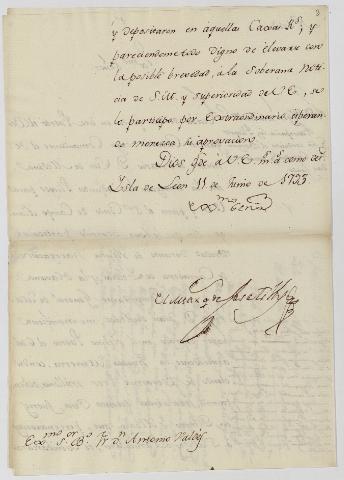 3
y depositaron en aquellas Caxas R.s; y
pareciendome todo digno de elevarse con
la posible brevedad, à la Soberana Noti-
cia de S.M. y superioridad de V.E., se
lo participo por Extraordinario, esperan-
do merezca su aprovacion.
Dios gde à V.E. m.s a.s como deseo.
Isla de Leon 11 de Junio de 1793.
Ex.mo Señor
El Marq.s de
Ex.mo S.or B.o Fr. D.n Antonio Valdés